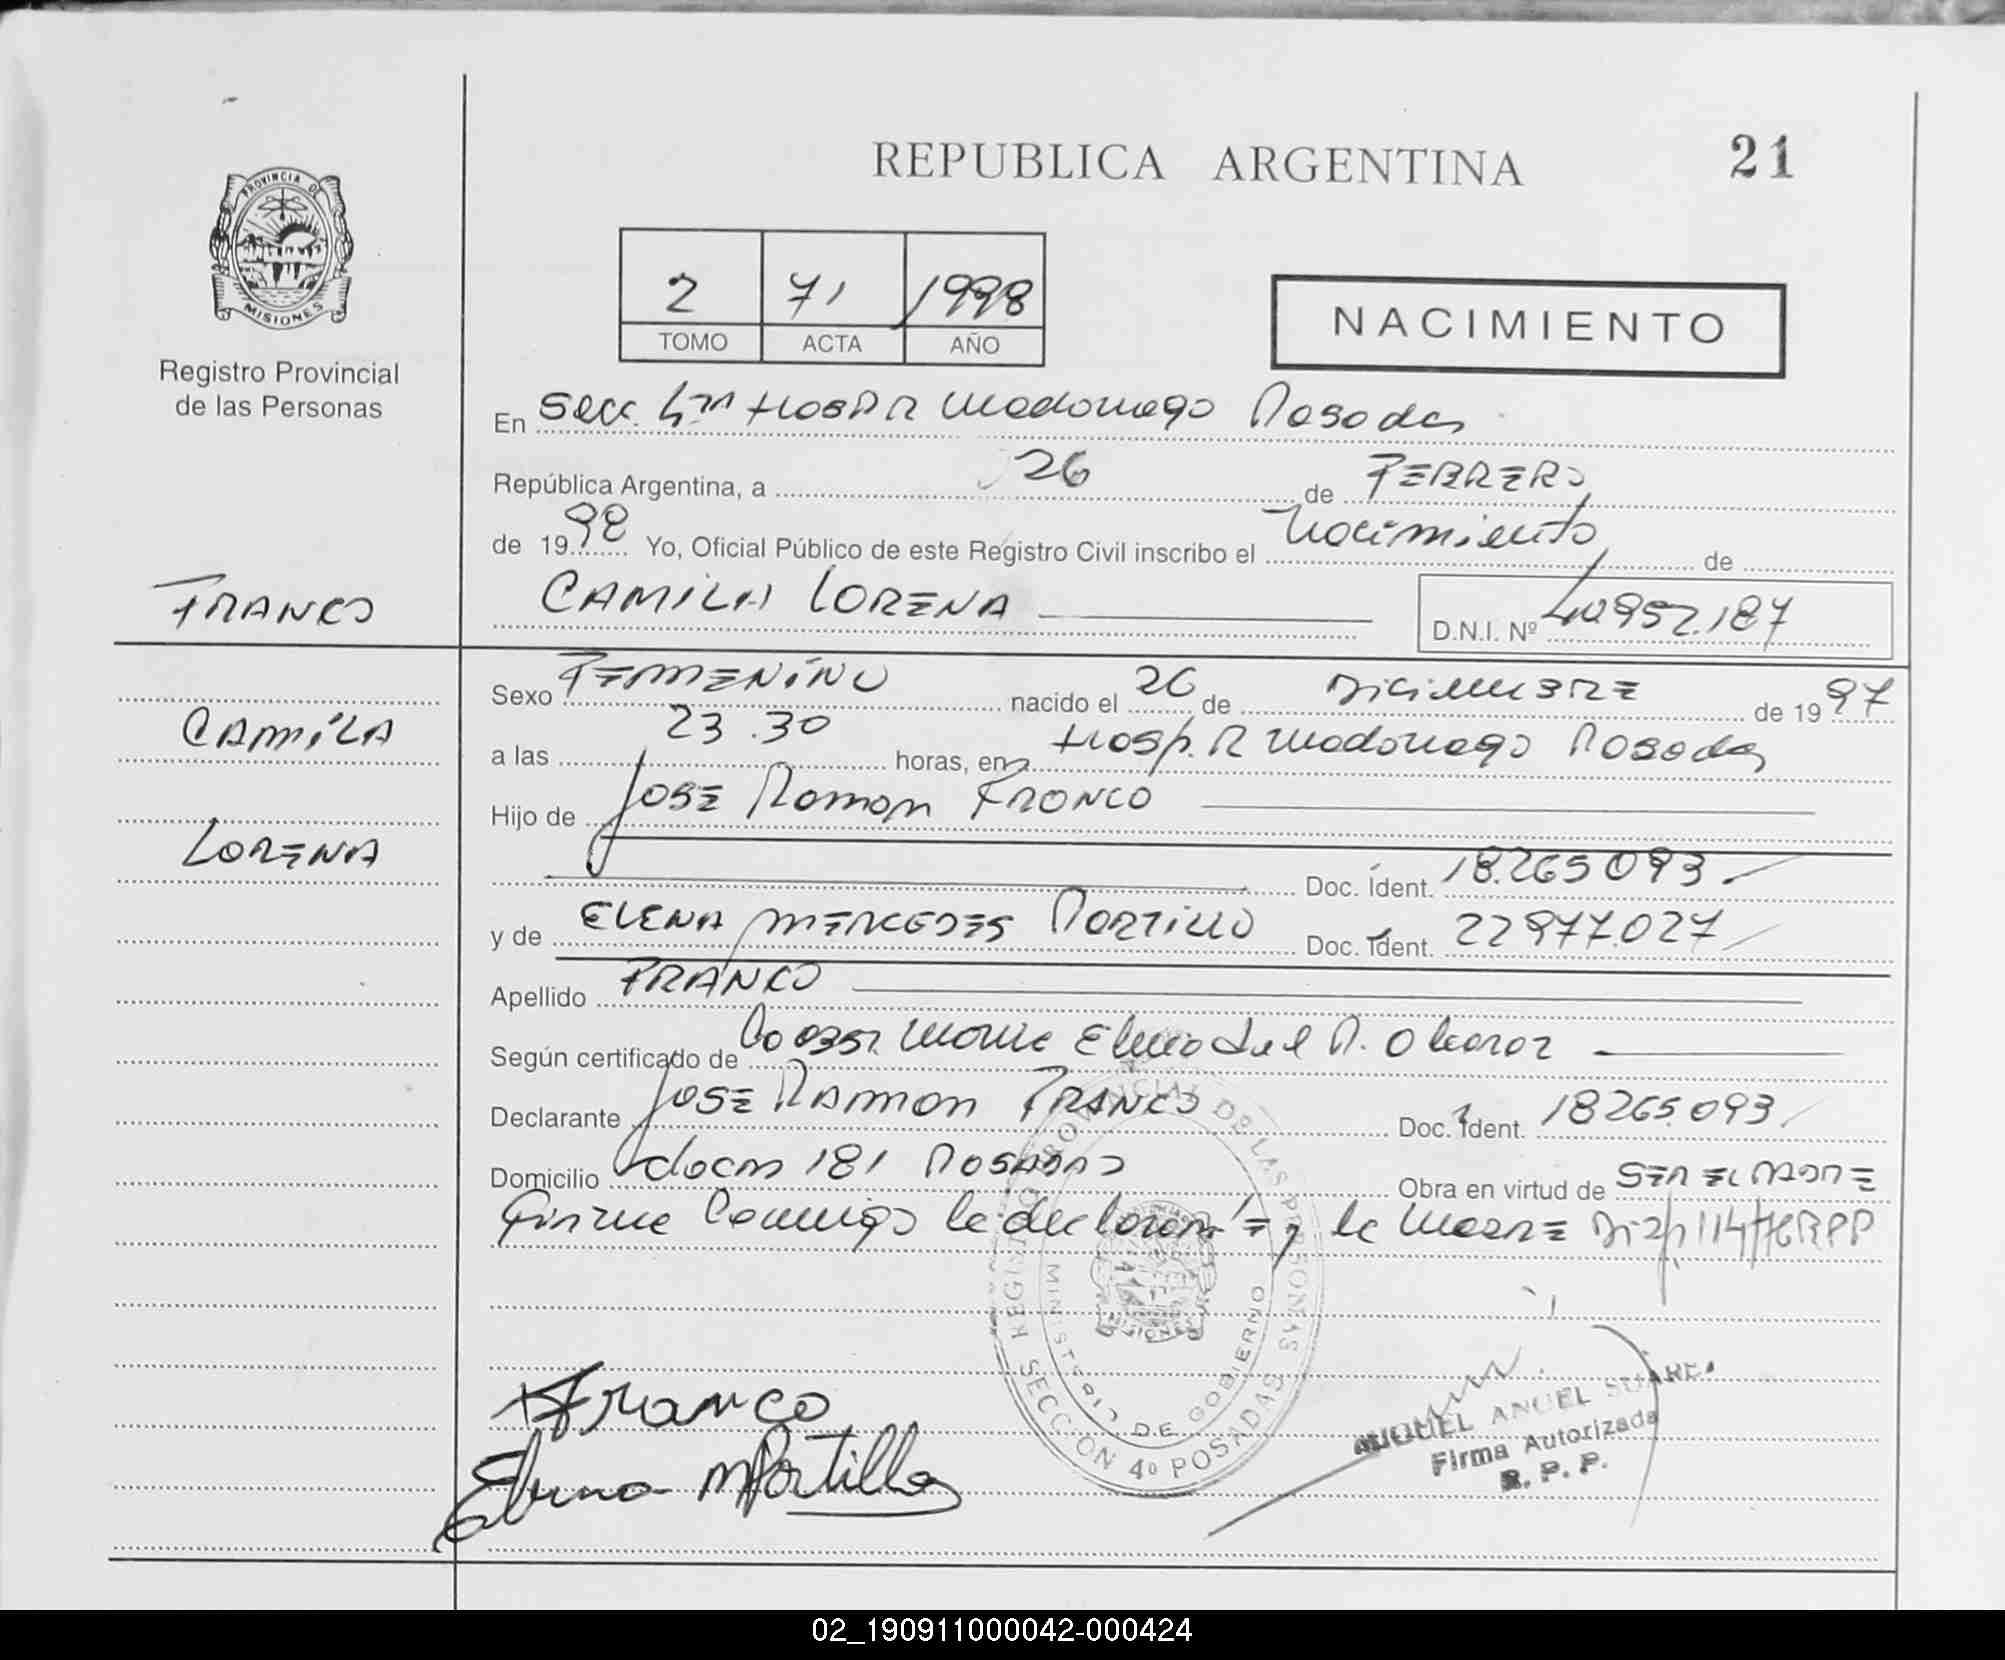 REPUBLICA ARGENTINA
21
PROVINCIA DE
MISIONES
Registro Provincial
de las Personas
2 71 1998
TOMO ACTA AÑO
NACIMIENTO
En Secc. 4ta Hosp R Madariaga Posadas
República Argentina, a 26 de FEBRERO
de 1998 Yo, Oficial Público de este Registro Civil inscribo el Nacimiento de
FRANCO
CAMILA LORENA
D.N.I. Nº 40952.187
CAMILA
LORENA
Sexo FEMENINO nacido el 26 de DICIEMBRE de 1997
a las 23.30 horas, en Hosp. R Madariaga Posadas
Hijo de JOSE Ramon FRANCO
Doc. Ident. 18.265093
y de ELENA MERCEDES PORTILLO Doc. Ident. 22977.027
Apellido FRANCO
Según certificado de
Declarante JOSE RAMON FRANCO Doc. Ident. 18265.093
Domicilio 181 POSADAS Obra en virtud de SER EL PADRE
Firma Conmigo la declarante y la MADRE Disp 114/
REGISTRO PROVINCIAL DE LAS PERSONAS
MINISTERIO DE GOBIERNO
MISIONES
SECCION 4º POSADAS
Franco
Elena M Portillo
MIGUEL ANGEL SUAREZ
Firma Autorizada
R. P. P.
02_190911000042-000424